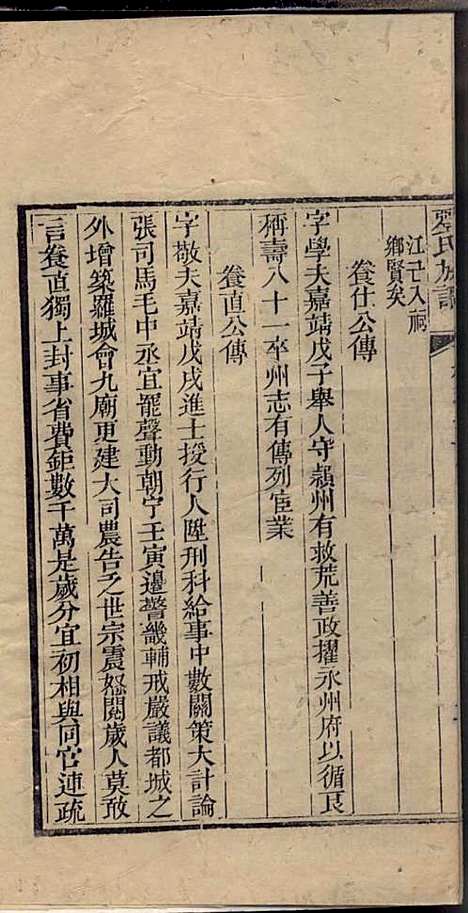 氏族譜
江已入祠
鄉賢矣
養仕公傳
字學夫嘉靖戊子舉人守潁州有救荒善政擢永州府以循良
稱壽八十一卒州志有傳列宦業
養直公傳
字敬夫嘉靖戊戌進士授行人陞刑科給事中數關策大計論
張司馬毛中丞宜罷聲動朝宁壬寅邊警畿輔戒嚴議都城之
外增築羅城會九廟更建大司農告乏世宗震怒閱歲人莫敢
言養直獨上封事省費鉅數千萬是歲分宜初相與同官連疏